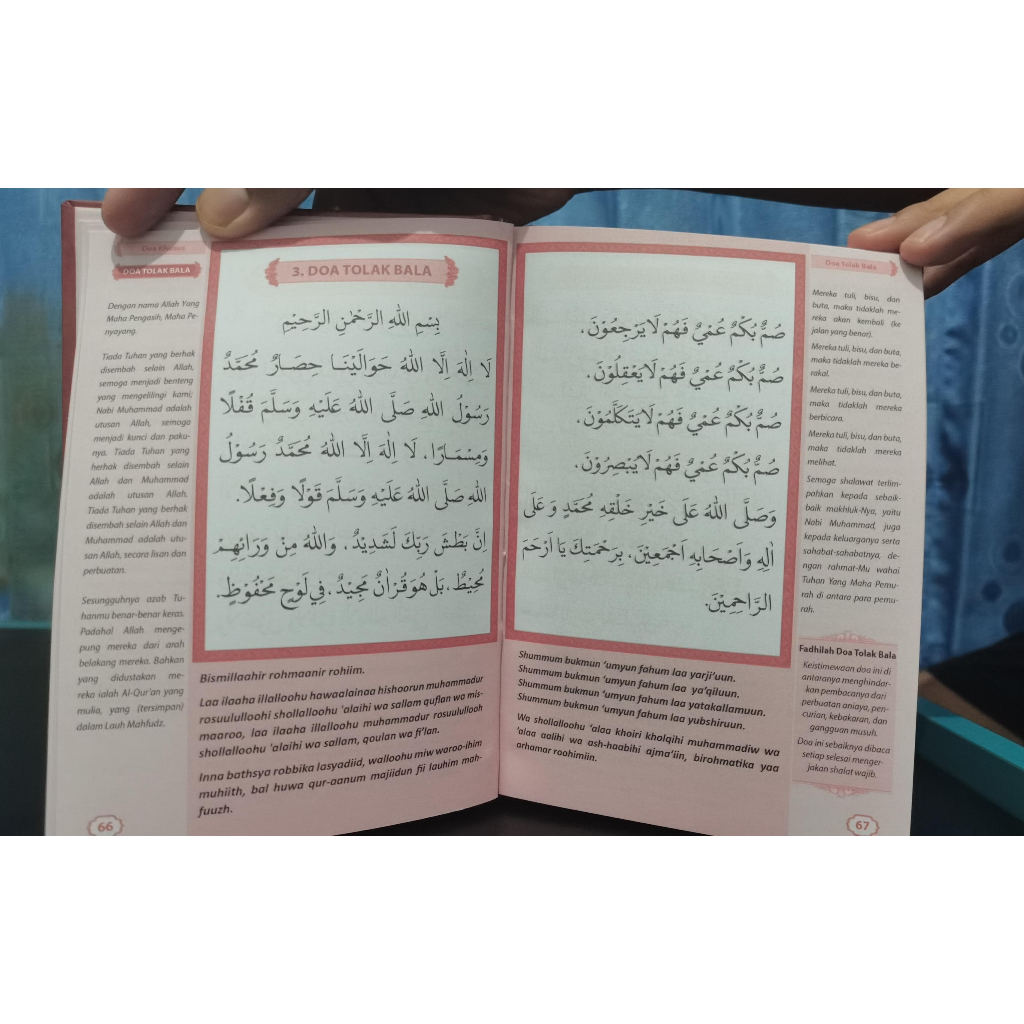 Doa Khusus
DOA TOLAK BALA
Dengan nama Allah Yang
Maha Pengasih, Maha Pe-
nyayang.
Tiada Tuhan yang berhak
disembah selain Allah,
semoga menjadi benteng
yang mengelilingi kami;
Nabi Muhammad adalah
utusan Allah, semoga
menjadi kunci dan paku-
nya. Tiada Tuhan yang
berhak disembah selain
Allah dan Muhammad
adalah utusan Allah.
Tiada Tuhan yang berhak
disembah selain Allah dan
Muhammad adalah utu-
san Allah, secara lisan dan
perbuatan.
Sesungguhnya azab Tu-
hanmu benar-benar keras.
Padahal Allah menge-
pung mereka dari arah
belakang mereka. Bahkan
yang didustakan me-
reka ialah Al-Qur'an yang
mulia, yang (tersimpan)
dalam Lauh Mahfudz.
66
3. DOA TOLAK BALA
بِسْمِ اللهِ الرَّحْمٰنِ الرَّحِيْمِ
لَا اِلٰهَ اِلَّا اللهُ حَوَالَيْنَا حِصَارٌ مُحَمَّدٌ
رَسُوْلُ اللهِ صَلَّى اللهُ عَلَيْهِ وَسَلَّمَ قُفْلًا
وَمِسْمَارًا. لَا اِلٰهَ اِلَّا اللهُ مُحَمَّدٌ رَسُوْلُ
اللهِ صَلَّى اللهُ عَلَيْهِ وَسَلَّمَ قَوْلًا وَفِعْلًا.
اِنَّ بَطْشَ رَبِّكَ لَشَدِيْدٌ، وَاللهُ مِنْ وَرَائِهِمْ
مُحِيْطٌ، بَلْ هُوَ قُرْاٰنٌ مَجِيْدٌ، فِي لَوْحٍ مَحْفُوْظٍ.
Bismillaahir rohmaanir rohiim.
Laa ilaaha illalloohu hawaalainaa hishoorun muhammadur
rosuulullooh shollalloohu 'alaihi wa sallam quflan wa mis-
maaroo, laa ilaaha illalloohu muhammadur rosuulullooh
shollalloohu 'alaihi wa sallam, qoulan wa fi'lan.
Inna bathsya robbika lasyadiid, walloohu miw waroo-ihim
muhiith, bal huwa qur-aanum majiidun fii lauhim mah-
fuuzh.
صُمٌّ بُكْمٌ عُمْيٌ فَهُمْ لَا يَرْجِعُوْنَ.
صُمٌّ بُكْمٌ عُمْيٌ فَهُمْ لَا يَعْقِلُوْنَ.
صُمٌّ بُكْمٌ عُمْيٌ فَهُمْ لَا يَتَكَلَّمُوْنَ.
صُمٌّ بُكْمٌ عُمْيٌ فَهُمْ لَا يُبْصِرُوْنَ.
وَصَلَّى اللهُ عَلَى خَيْرِ خَلْقِهِ مُحَمَّدٍ وَ عَلَى
اٰلِهِ وَاَصْحَابِهِ اَجْمَعِيْنَ، بِرَحْمَتِكَ يَا اَرْحَمَ
الرَّاحِمِيْنَ.
Shummum bukmun 'umyun fahum laa yarji'uun.
Shummum bukmun 'umyun fahum laa ya'qiluun.
Shummum bukmun 'umyun fahum laa yatakallamuun.
Shummum bukmun 'umyun fahum laa yubshiruun.
Wa shollalloohu 'alaa khoiri kholqihi muhammadiw wa
'alaa aalihi wa ash-haabihi ajma'iin, birohmatika yaa
arhamar roohimiin.
Doa Tolak Bala
Mereka tuli, bisu, dan
buta, maka tidaklah me-
reka akan kembali (ke
jalan yang benar).
Mereka tuli, bisu, dan buta,
maka tidaklah mereka be-
rakal.
Mereka tuli, bisu, dan buta,
maka tidaklah mereka
berbicara.
Mereka tuli, bisu, dan buta,
maka tidaklah mereka
melihat.
Semoga shalawat terlim-
pahkan kepada sebaik-
baik makhluk-Nya, yaitu
Nabi Muhammad, juga
kepada keluarganya serta
sahabat-sahabatnya, de-
ngan rahmat-Mu wahai
Tuhan Yang Maha Pemu-
rah di antara para pemu-
rah.
Fadhilah Doa Tolak Bala
Keistimewaan doa ini di
antaranya menghindar-
kan pembacanya dari
perbuatan aniaya, pen-
curian, kebakaran, dan
gangguan musuh.
Doa ini sebaiknya dibaca
setiap selesai menger-
jakan shalat wajib.
67